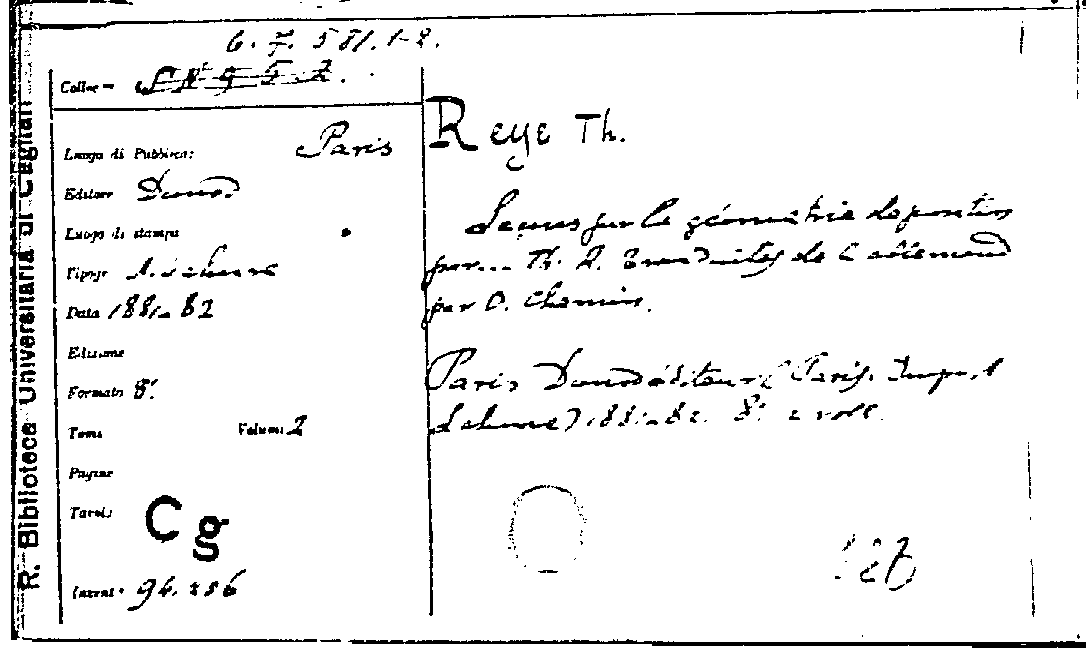 R. Biblioteca Universitaria di Cagliari
6. 7. 58/.1-2.
Colloc=
Luogo di Pubblica: Paris
Editore Dunod
Luogo di stampa
Tipogr A. Lahure
Data 1881-82
Edizione
Formato 8°.
Tomi Volumi 2
Pagine
Tavole
Cg
Invent. 94.256
Reye Th.
Leçons sur la géométrie de position
par... Th. R. Traduites de l'allemand
par O. Chemin.
Paris Dunod éditeur (Paris. Imp. A
Lahure) 1881-82. 8°. 2 voll.